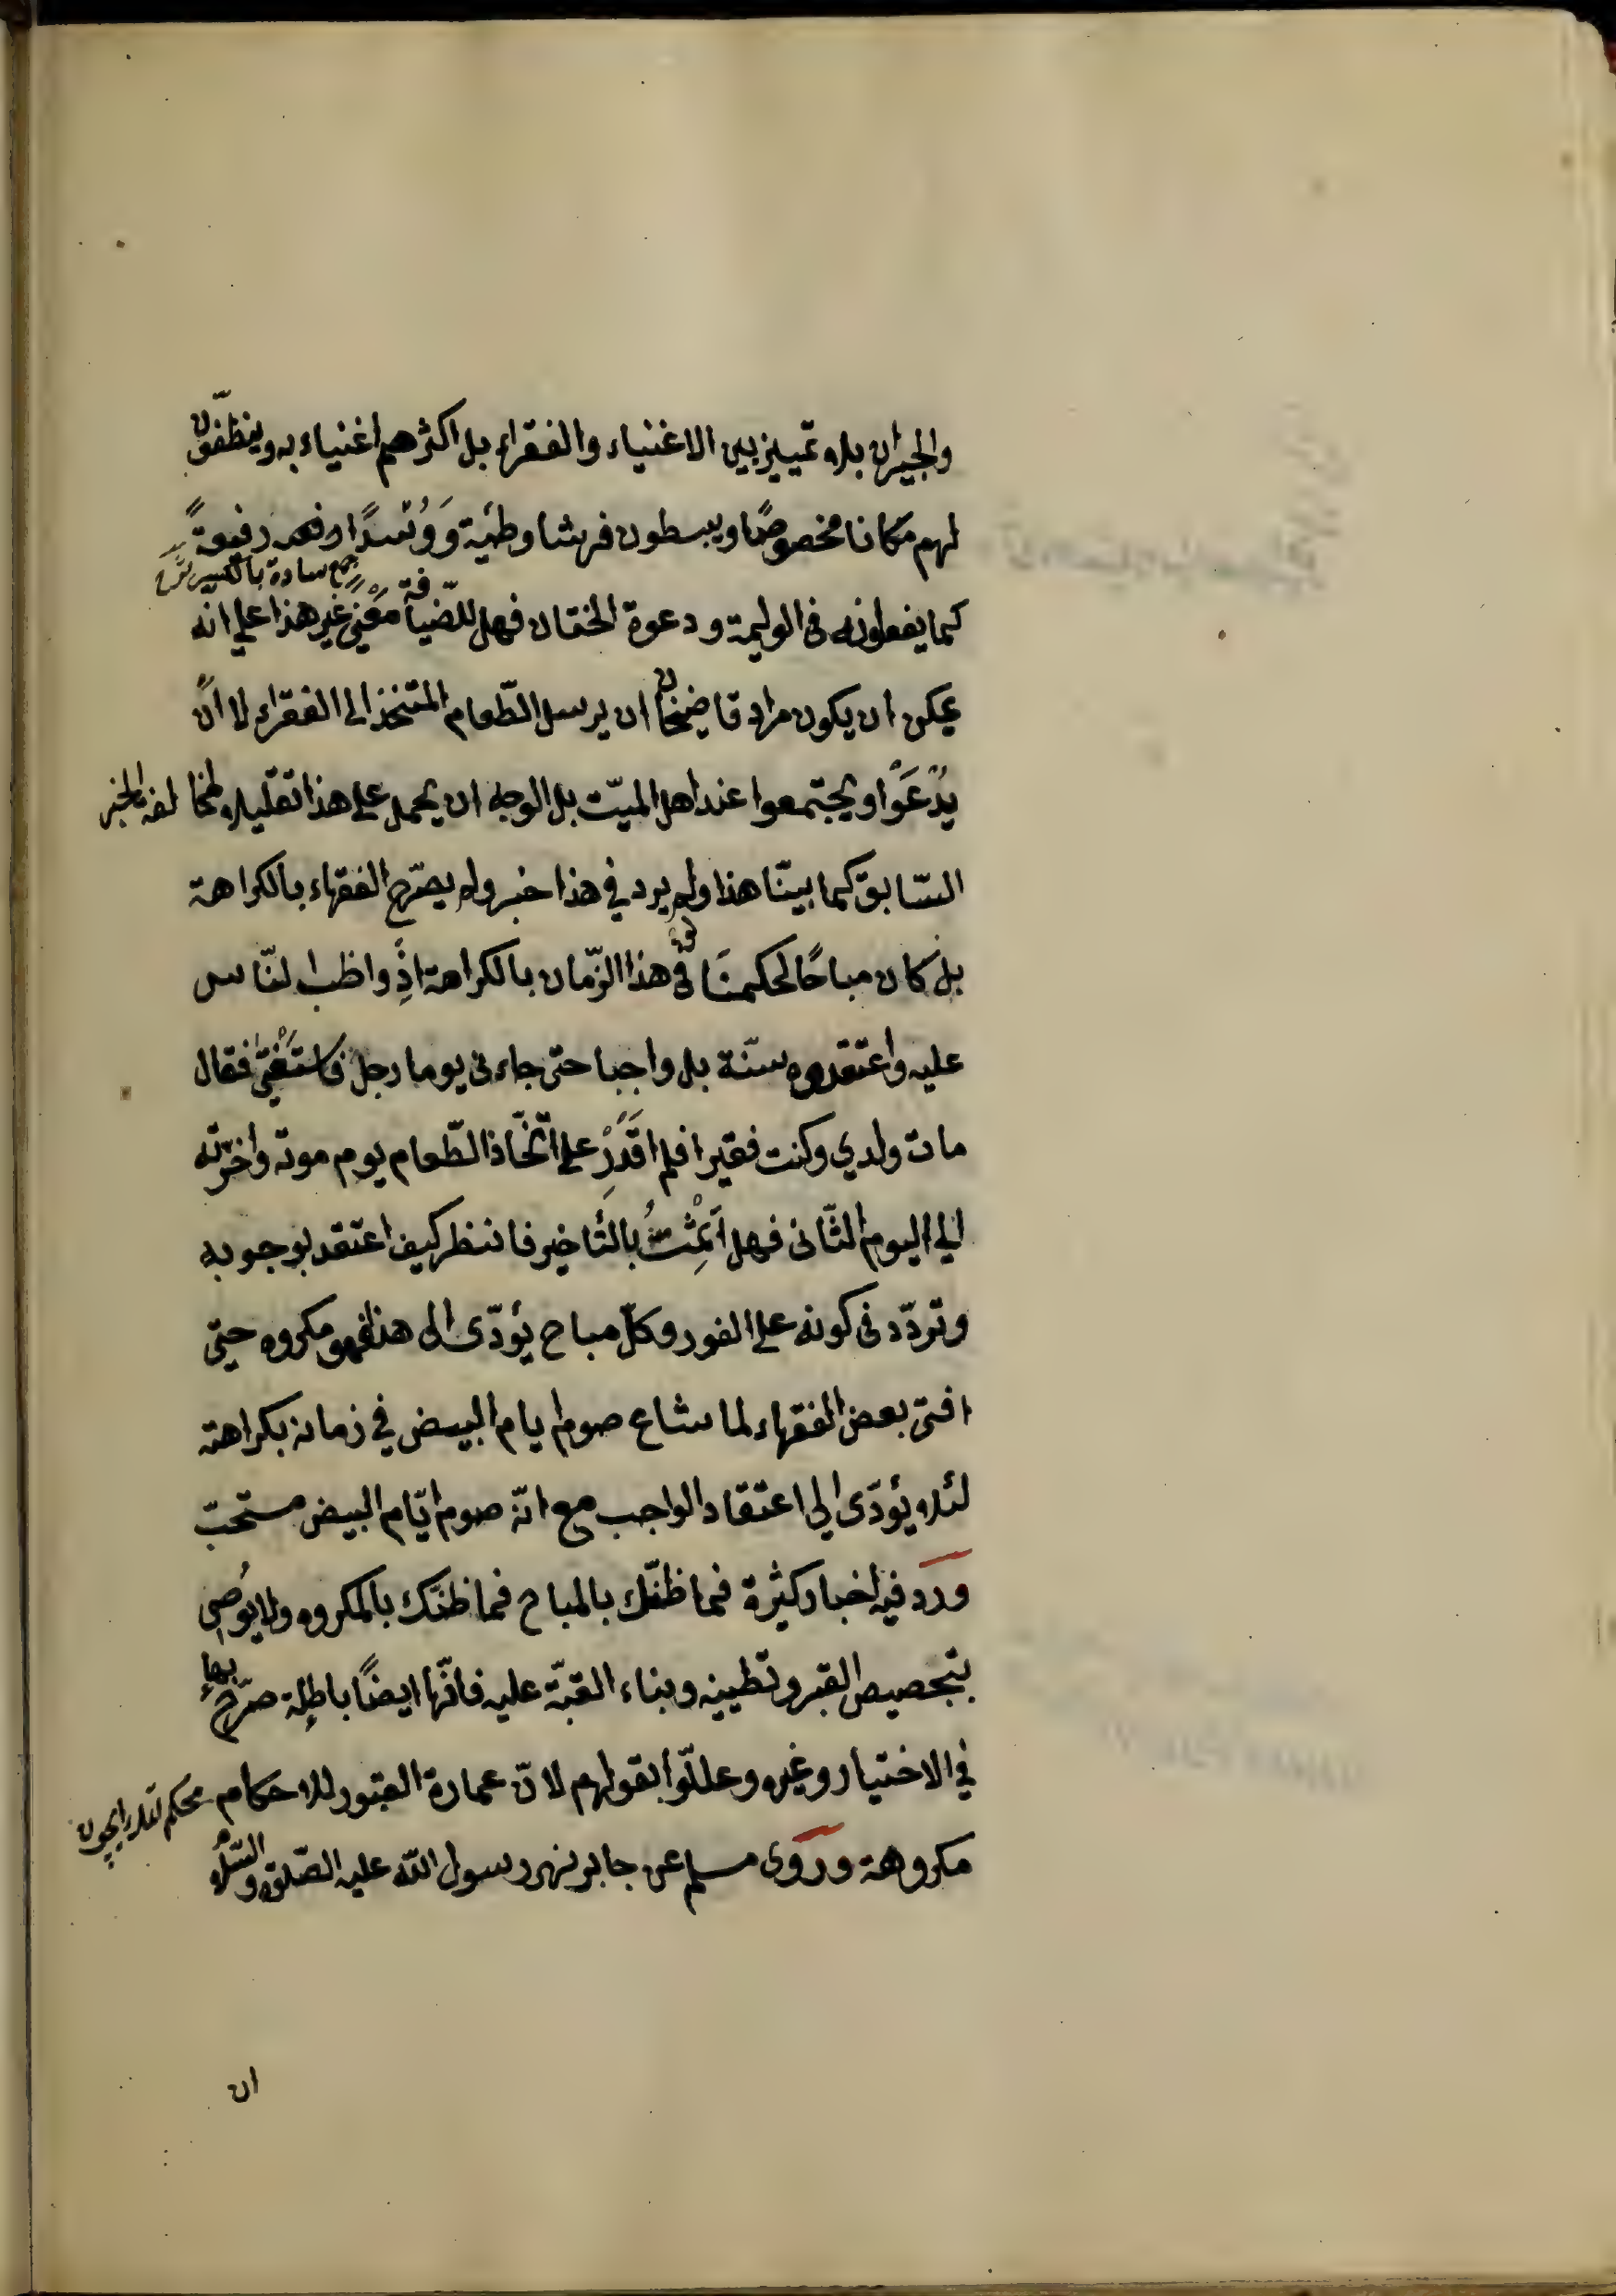 والجيران بلا تمييز بين الاغنياء والفقراء بل اكثرهم اغنياء به وينظفون
لهم مكانا مخصوصًا ويبسطون فرشا وطيّة وَوُسُدًا رفيعةً
جمع سادة بالكسر
كما يفعلونه فى الوليمة ودعوة الختان فهل للضّيافة معنىً غير هذا على انّه
يمكن ان يكون مراد قاضيخان ان يرسل الطّعام المتّخذ الى الفقراء لا انّ
يُدْعَوْا ويجتمعوا عند اهل الميّت بل الوجه ان يحمل على هذا تقليلا لمخالفة الخبر
السّابق كما بيّنا هذا ولو لم يرد في هذا خبر ولم يصرّح الفقهاء بالكراهة
بل كان مباحًا لحكمنَا فى هذا الزّمان بالكراهة اذِ واظب النّاس
عليه واعتقدوه سنّة بل واجبا حتى جاءنى يوما رجل فاستفتىٰ فقال
مات ولدي وكنت فقيرا فلم اقدِرْ على اتّخاذ الطّعام يوم موته واخّرته
الى اليوم الثّانى فهل اَثِمْتُ بالتّأخير فانظر كيف اعتقد بوجوبه
وتردّد فى كونه على الفور وكلّ مباح يؤدّى الى هذا فهو مكروه حتىّ
افتى بعض الفقهاء لما شاع صوم ايام البيض في زمانه بكراهته
لئلا يؤدّى الى اعتقاد الواجب مع انّ صوم ايّام البيض مستحبّ
ورد فيه اخبار كثيرة فما ظنّك بالمباح فما ظنّك بالمكروه ولا يُوصِى
بتجصيص القبر وتطيينه وبناء القبّة عليه فانّها ايضًا باطلة صرّح بها
في الاختيار وغيره وعلّلوا بقولهم لانّ عمارة القبور للاحكام
مكروهة وروى مسلم عن جابر نهى رسول اللّه عليه الصّلوة والسّلام
ان